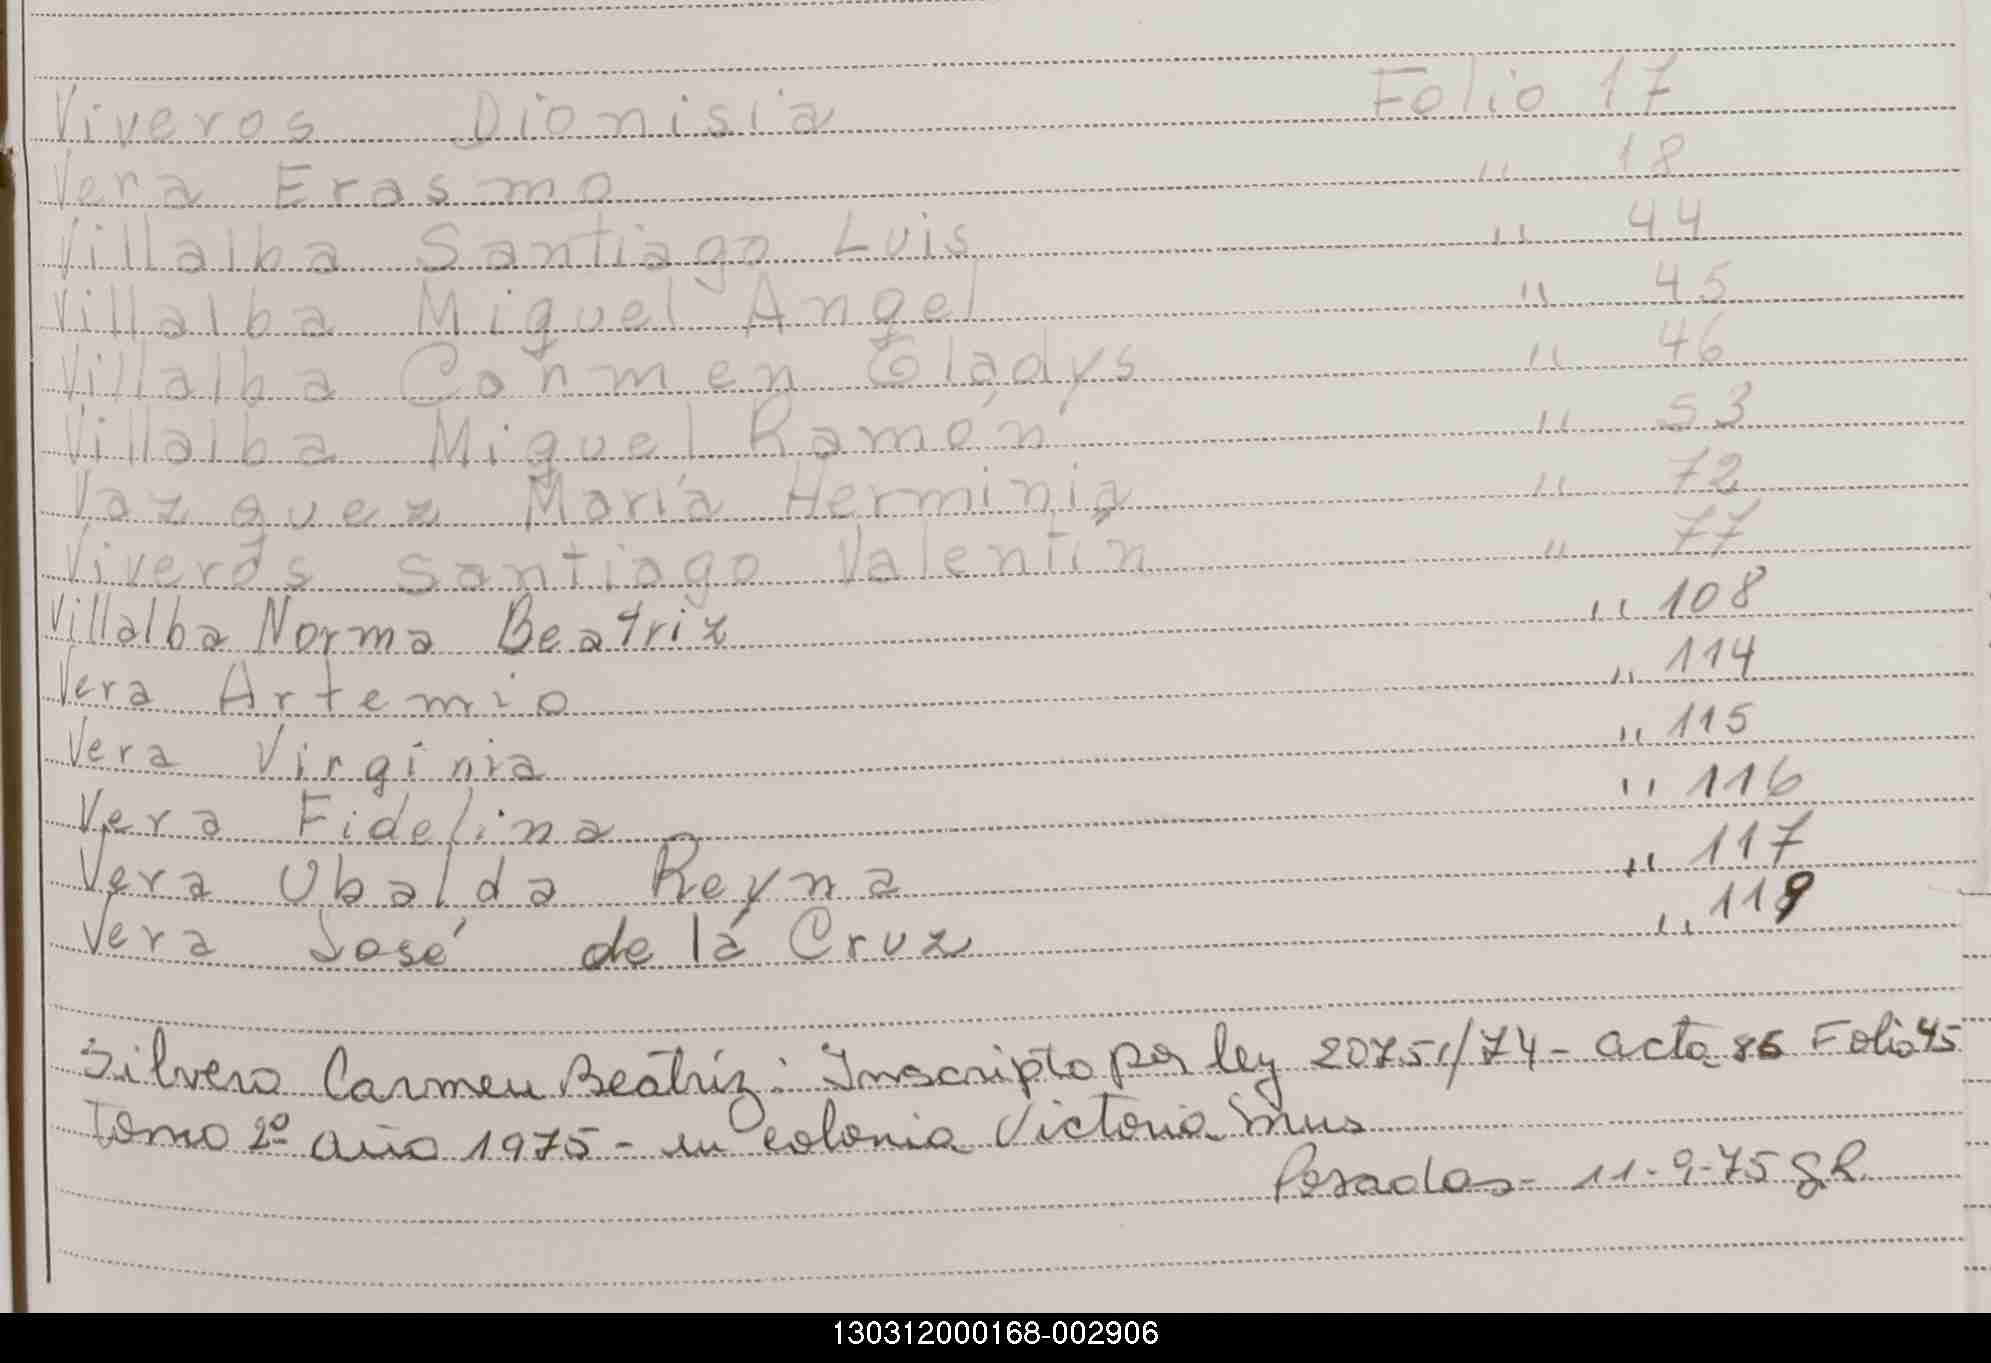 Viveros Dionisia Folio 17
Vera Erasmo " 18
Villalba Santiago Luis " 44
Villalba Miguel Angel " 45
Villalba Carmen Gladys " 46
Villalba Miguel Ramón " 53
Vazquez María Herminia " 72
Viveros Santiago Valentín " 77
Villalba Norma Beatriz " 108
Vera Artemio " 114
Vera Virginia " 115
Vera Fidelina " 116
Vera Ubalda Reyna " 117
Vera José de la Cruz " 119
Silvero Carmen Beatriz: Inscripto por ley 20751/74 - acta 86 Folio 45
Tomo 2º año 1975 - en colonia Victoria Mnes
Posadas - 11-9-75
130312000168-002906